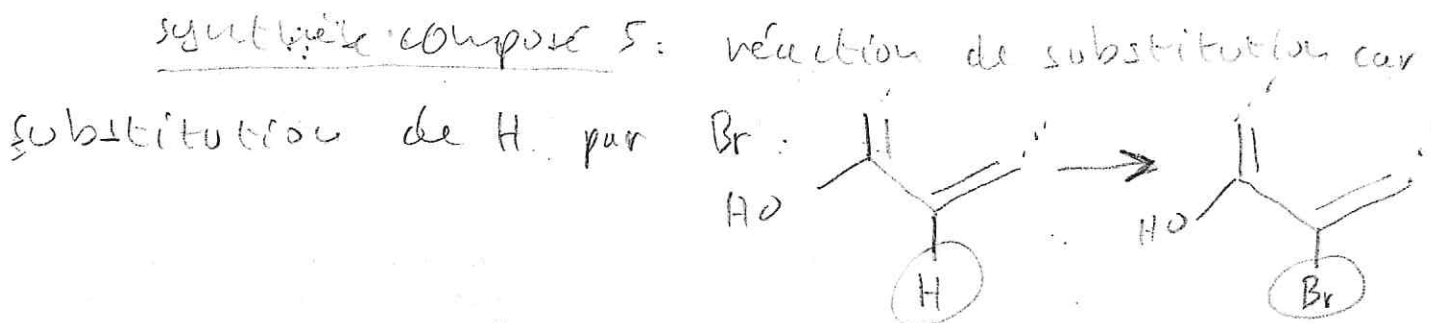 synthèse composé 5: réaction de substitution car
substitution de H par Br:
HO
H
HO
Br